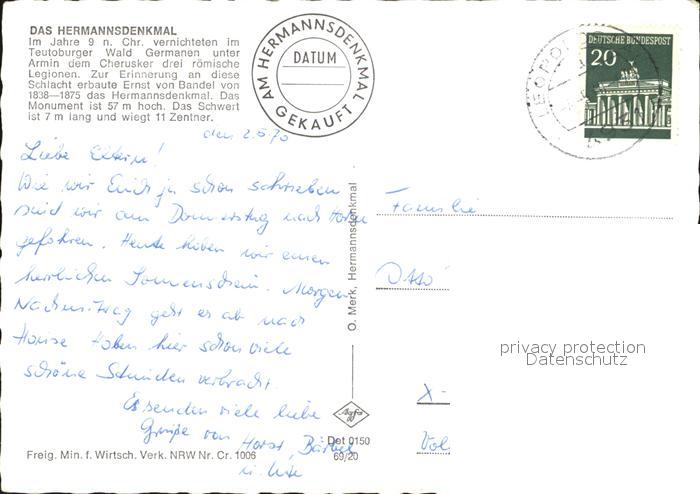 DAS HERMANNSDENKMAL
Im Jahre 9 n. Chr. vernichteten im
Teutoburger Wald Germanen unter
Armin dem Cherusker drei römische
Legionen. Zur Erinnerung an diese
Schlacht erbaute Ernst von Bandel von
1838—1875 das Hermannsdenkmal. Das
Monument ist 57 m hoch. Das Schwert
ist 7 m lang und wiegt 11 Zentner.
AM HERMANNSDENKMAL
DATUM
GEKAUFT
DEUTSCHE BUNDESPOST
20
den 2.5.70
Liebe Eltern!
Wie wir Euch ja schon schrieben
sind wir am Donnerstag nach Horn
gefahren. Heute haben wir einen
herrlichen Sonnenschein. Morgen
Nachmittag geht es ab nach
Hause Haben hier schon viele
schöne Stunden verbracht
Es senden viele liebe
Grüße von Horst, Bärbel
u. Ute
Freig. Min. f. Wirtsch. Verk. NRW Nr. Cr. 1006
O. Merk, Hermannsdenkmal
Agfa
Det 0150
69/20
Familie
Otto
X-
privacy protection
Datenschutz